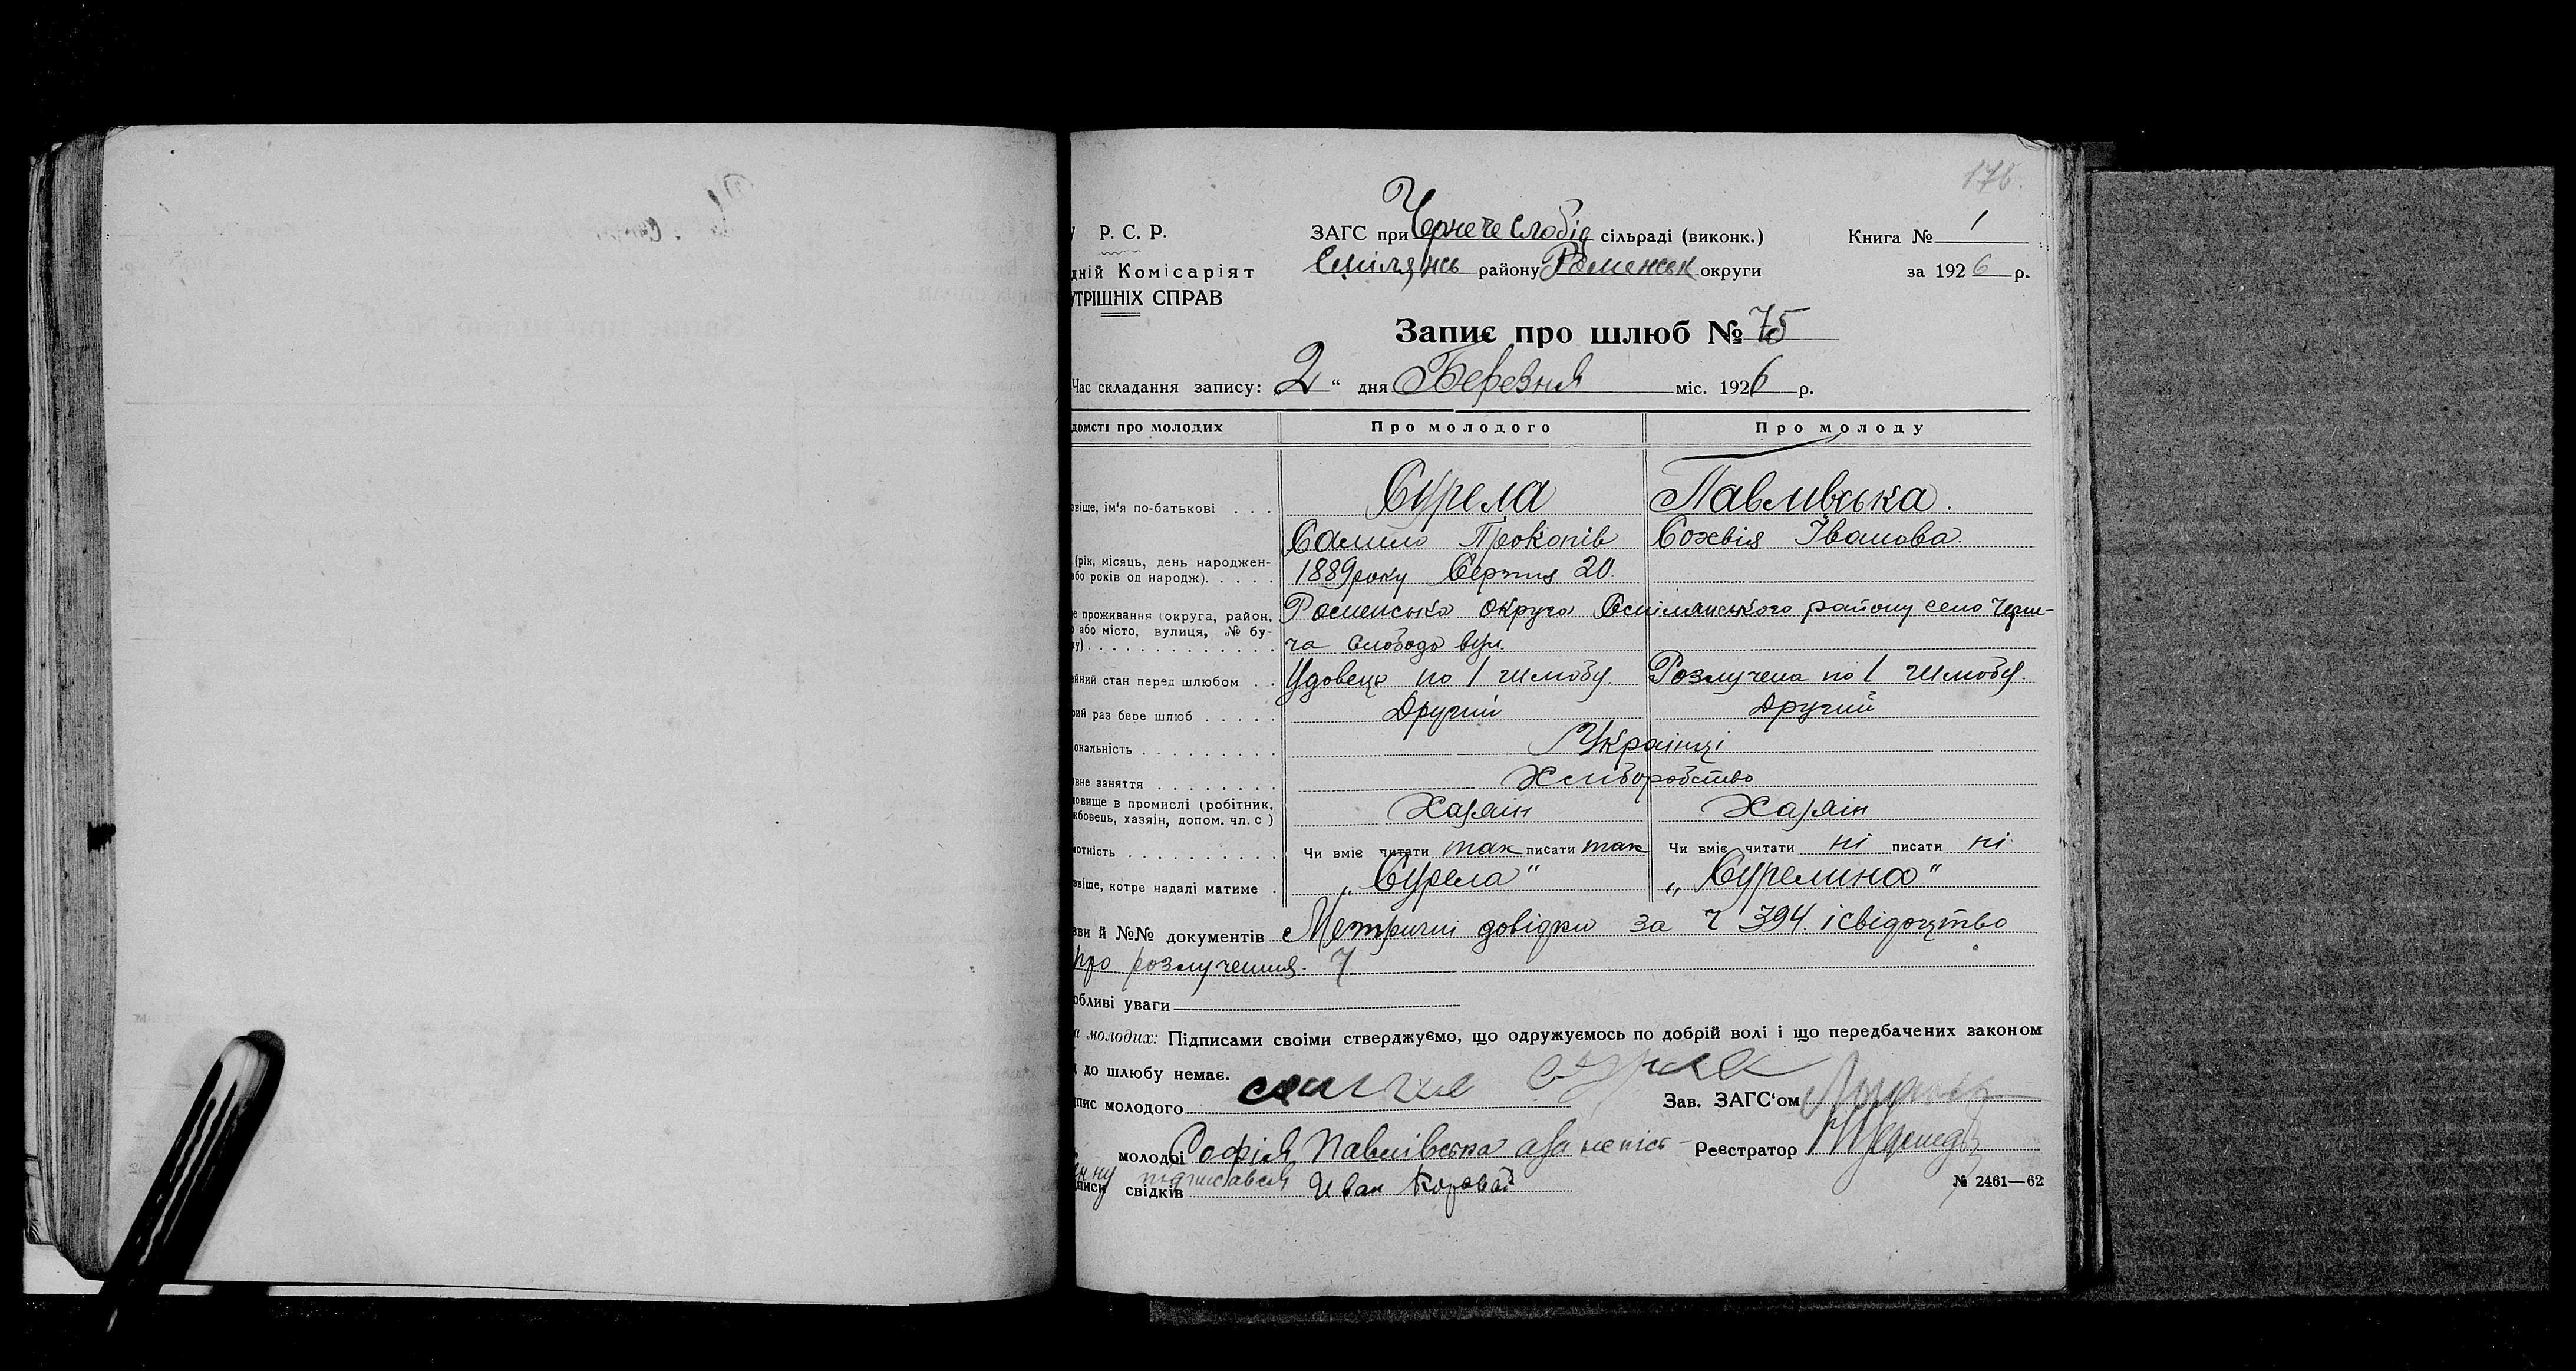 176.
У Р. С. Р.
ЗАГС при Чернече Слобід сільраді (виконк.)
Книга № 1
дній Комісаріят
Смілянсь району Роменськ округи
за 1926 р.
УТРІШНІХ СПРАВ
Запис про шлюб № 75
Час складання запису: „2" дня Березня міс. 1926 р.
домсті про молодих Про молодого Про молоду
звіще, ім'я по-батькові . . . Сурела Павливська.
Самило Прокопів Сохвія Іванова.
(рік, місяць, день народжен-
або років од народж). . . . . 1889 року Серпня 20.
е проживання (округа, район, Роменська округа Смілянського району село Черне-
о або місто, вулиця, № бу-
ку) . . . . . . . . . . . . . ча Слобода вул.
ейний стан перед шлюбом . . Удовець по 1 шлюбу. Розлучена по 1 шлюбу.
рий раз бере шлюб . . . . . Другий Другий
ональність . . . . . . . . . Українці
овне заняття . . . . . . . . Хліборобство
овище в промислі (робітник,
жбовець, хазяін, допом. чл. с ) Хазяін Хазяін
мотність . . . . . . . . . . Чи вміє читати так писати так Чи вміє читати ні писати ні
звіще, котре надалі матиме . „Сурела" „Сурелина"
зви й №№ документів Метричні довідки за ч 394. і свідоцтво
про розлучення. 7
обливі уваги
а молодих: Підписами своіми стверджуємо, що одружуємось по добрій волі і що передбачених законом
до шлюбу немає.
пис молодого Сурела
Зав. ЗАГС'ом
молодоі Софія Павлівська а за непісь-
Реєстратор
підписався
писи свідків Иван Коровай
№ 2461—62